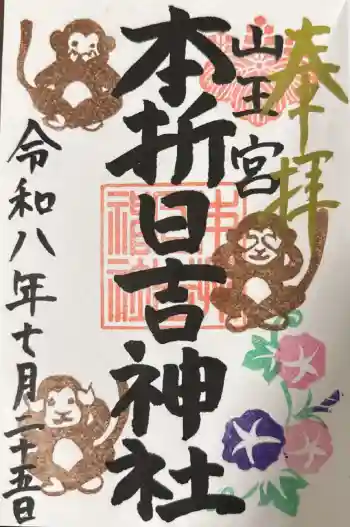 奉拝
山王宮
本折日吉神社
令和八年七月二十五日